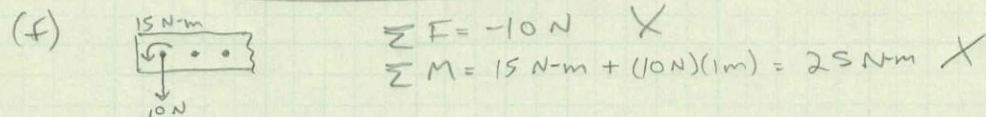 (f)
15 N-m
10 N
Σ F = -10 N X
Σ M = 15 N-m + (10N)(1m) = 25 N-m X